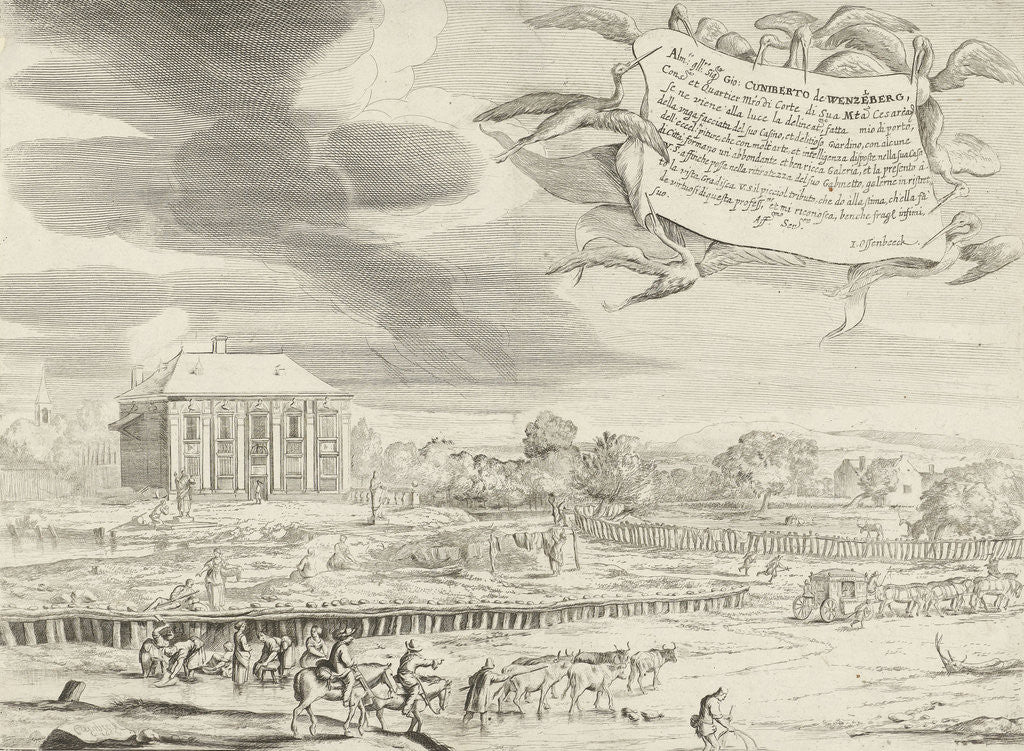 Alm.º Ill.º Sig.ʳ Gio: CUNIBERTO de WENZELSBERG,
Cons.ʳᵉ et Quartier Mrõ di Corte di Sua Mtà Cesarea
se ne viene alla luce la delineat.ᵉ fatta mio di porto,
della vaga facciata del suo Casino, et delitioso Giardino, con alcune
dell' eccel. piture, che con molt' arte et intelligenza disposte nella sua Casa
di Città, formano un' abbondante et ben ricca Galeria, et la presento à
V.S. affinche posta nella ritiratezza del suo Gabinetto, goderne in ristret,
to la vista. Gradisca V.S. il picciol tributo, che do alla stima, ch'ella fà
de virtuosi di questa profess.ⁿᵉ et mi riconosca, benche fragl' infimi,
suo. Aff.ᵐᵒ Ser.ʳᵉ
I. Ossenbeeck.